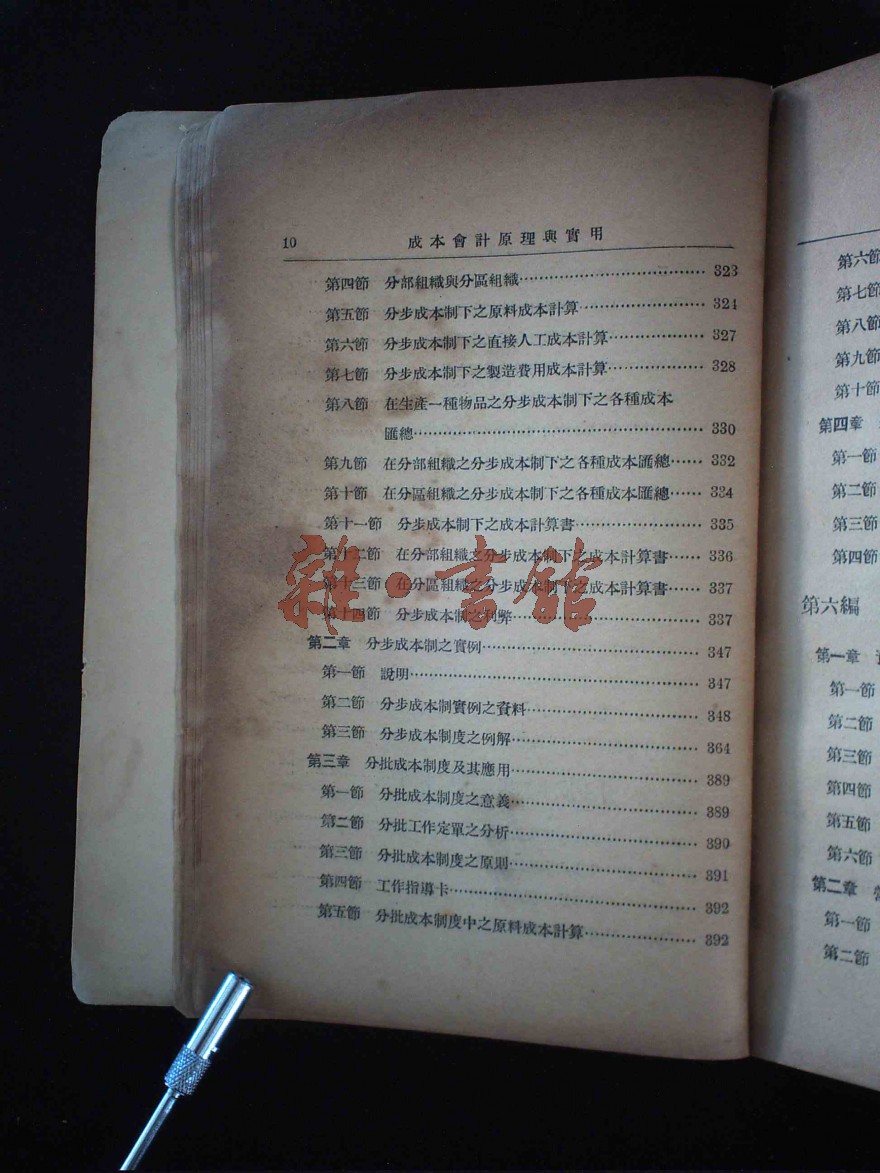 10 成本會計原理與實用
第四節 分部組織與分區組織…………………………… 323
第五節 分步成本制下之原料成本計算…………………… 324
第六節 分步成本制下之直接人工成本計算……………… 327
第七節 分步成本制下之製造費用成本計算……………… 328
第八節 在生產一種物品之分步成本制下之各種成本
匯總………………………………………………… 330
第九節 在分部組織之分步成本制下之各種成本匯總…… 332
第十節 在分區組織之分步成本制下之各種成本匯總…… 334
第十一節 分步成本制下之成本計算書…………………… 335
第十二節 在分部組織之分步成本制下之成本計算書…… 336
第十三節 在分區組織之分步成本制下之成本計算書…… 337
第十四節 分步成本制之利弊……………………………… 337
第二章 分步成本制之實例………………………………… 347
第一節 說明………………………………………………… 347
第二節 分步成本制實例之資料…………………………… 348
第三節 分步成本制度之例解……………………………… 364
第三章 分批成本制度及其應用…………………………… 389
第一節 分批成本制度之意義……………………………… 389
第二節 分批工作定單之分析……………………………… 390
第三節 分批成本制度之原則……………………………… 391
第四節 工作指導卡………………………………………… 392
第五節 分批成本制度中之原料成本計算………………… 392
雜·書館
第六節
第七節
第八節
第九節
第十節
第四章
第一節
第二節
第三節
第四節
第六編
第一章
第一節
第二節
第三節
第四節
第五節
第六節
第二章
第一節
第二節